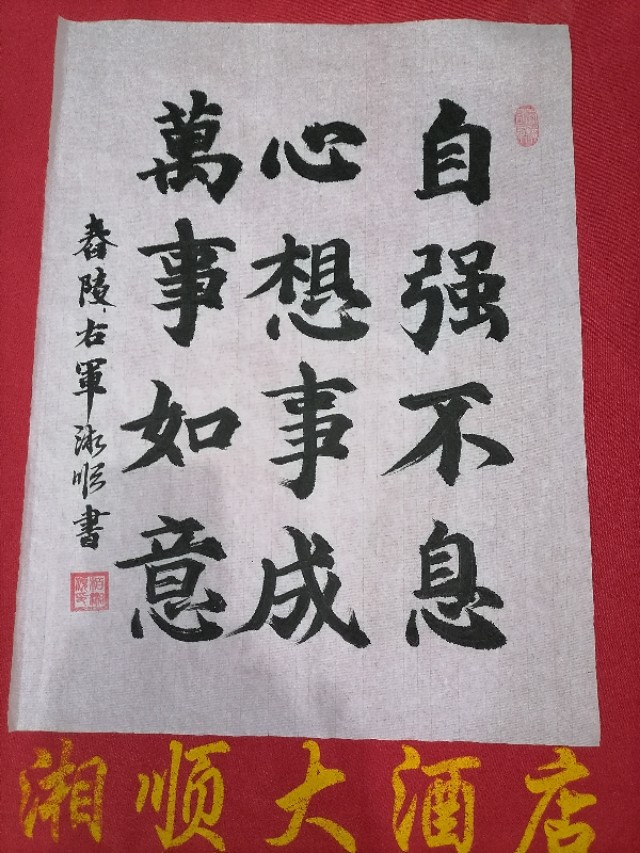 自强不息
心想事成
萬事如意
舂陵右軍湘順書
湘顺大酒店